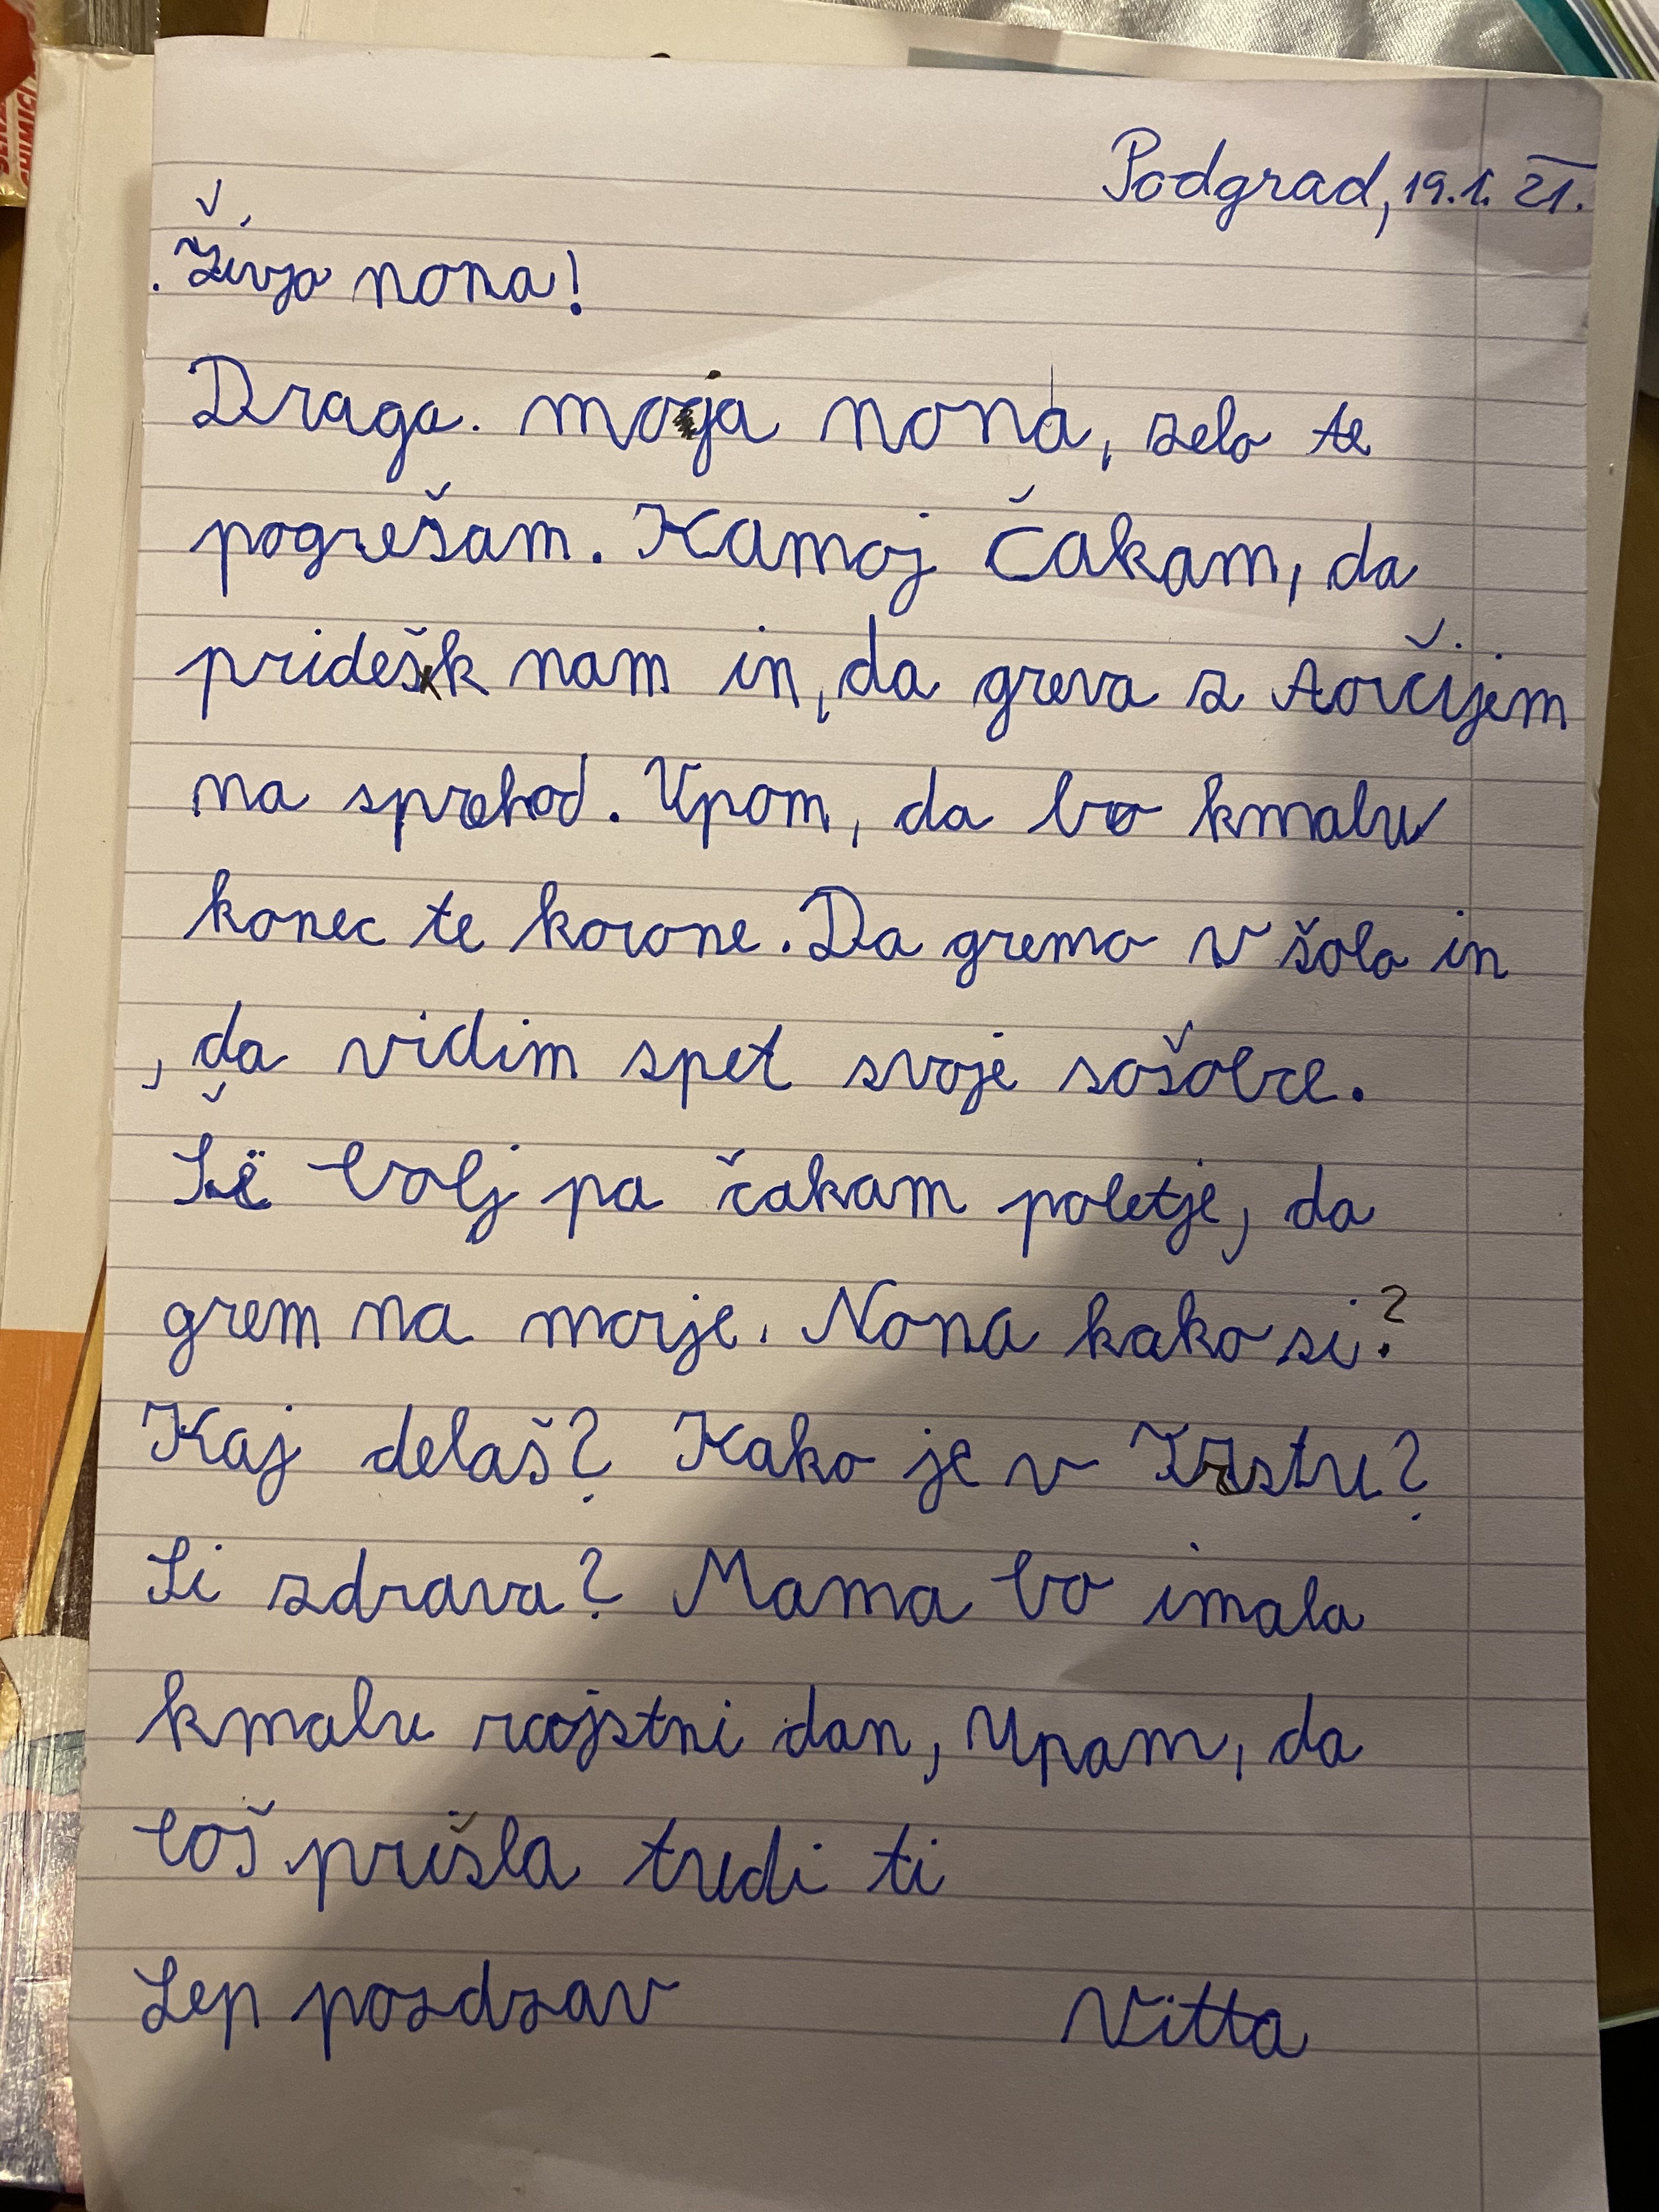 Podgrad, 19.1. 21.
Živjo nona!
Draga. moja nona, zelo te
pogrešam. Kamoj čakam, da
prideš k nam in, da greva z Aorčijem
na sprehod. Upom, da bo kmalu
konec te korone. Da gremo v šolo in
, da vidim spet svoje sošolce.
Še bolj pa čakam poletje, da
grem na morje. Nona kako si?
Kaj delaš? Kako je v Trstu?
Si zdrava? Mama bo imala
kmalu rojstni dan, Upam, da
boš prišla tudi ti
Lep pozdrav Vitta